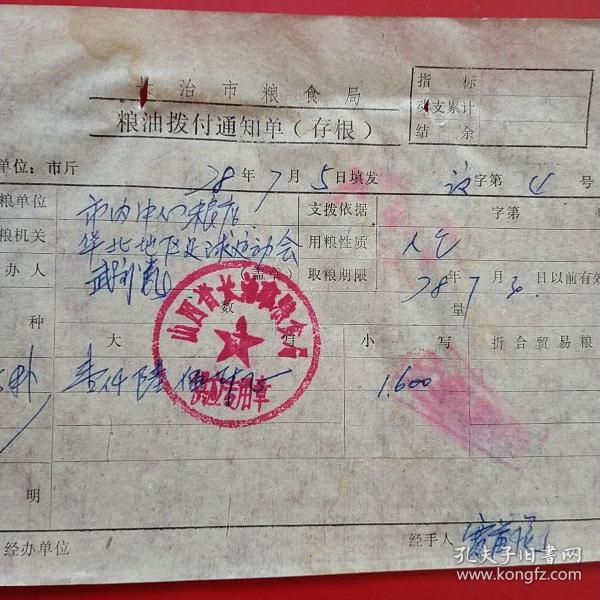 长治市粮食局
粮油拨付通知单（存根）
指 标
动支累计
结 余
单位：市斤
78年7月5日填发
字第4号
粮单位
市内中心粮店
支拨依据
字第
粮机关
华北地区足球运动会
用粮性质
办人
（盖章）
取粮期限
78年7月30日以前有效
种
数 量
大 写
小 写
折合贸易粮
壹仟陆佰
1.600
山西省长治市粮食局
专用章
明
经办单位
经手人
孔夫子旧书网
www.kongfz.com